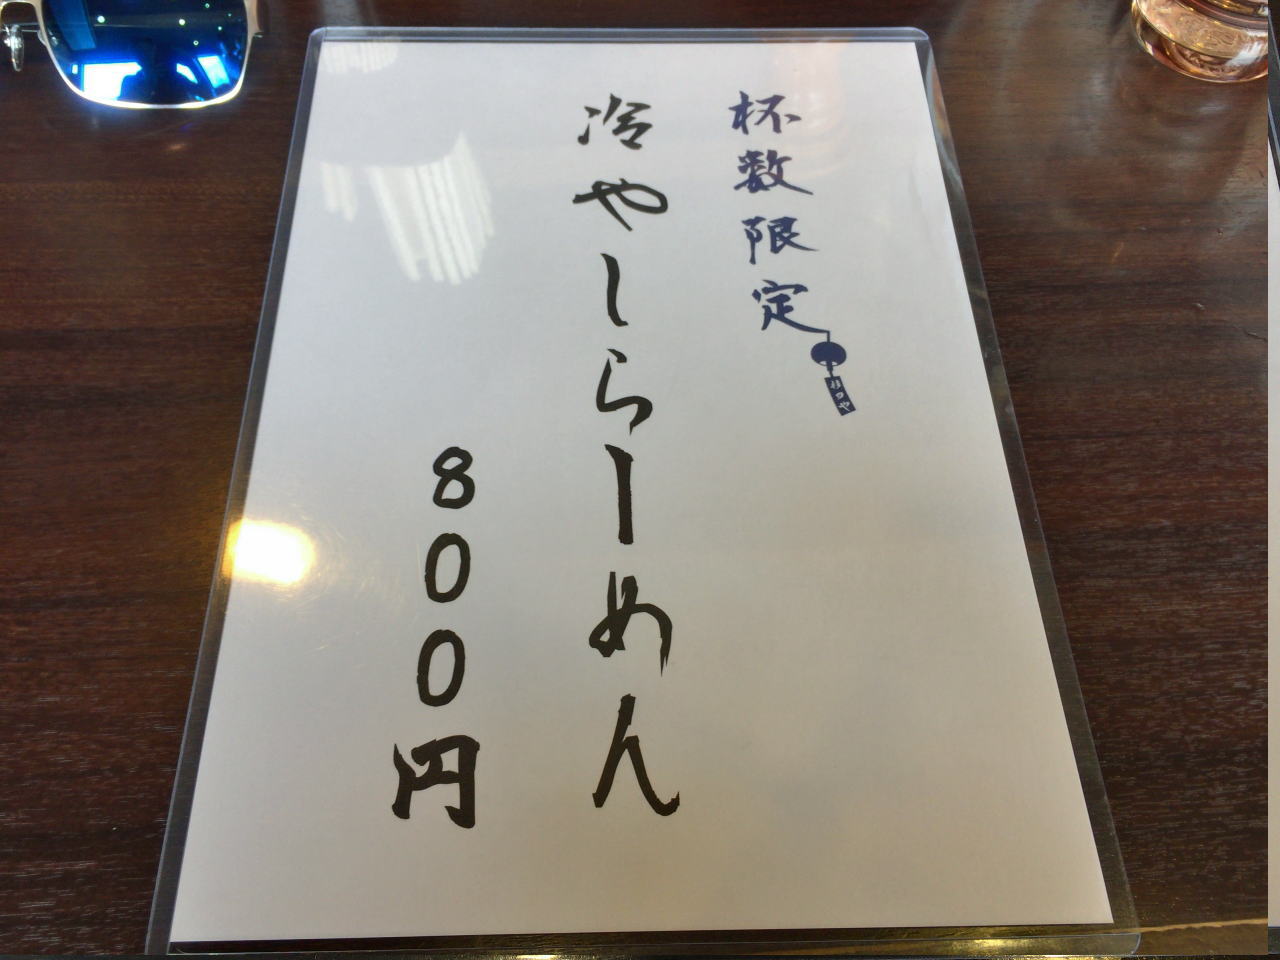 杯数限定
冷やしらーめん
800円